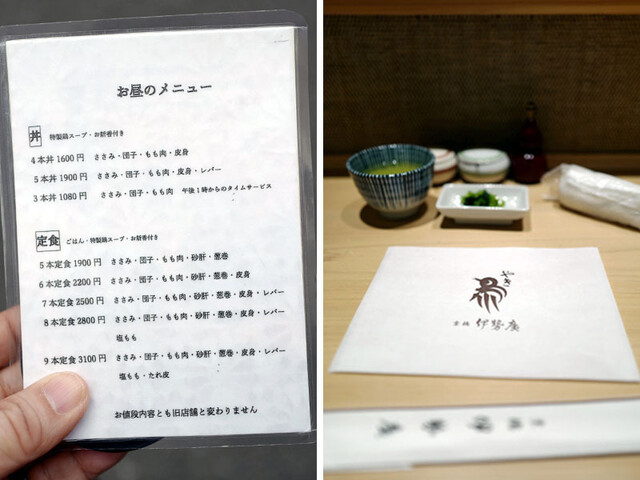 お昼のメニュー
丼 特製鶏スープ・お新香付き
4本丼 1600円 ささみ・団子・もも肉・皮身
5本丼 1900円 ささみ・団子・もも肉・皮身・レバー
3本丼 1080円 ささみ・団子・もも肉 午後1時からのタイムサービス
定食 ごはん・特製鶏スープ・お新香付き
5本定食 1900円 ささみ・団子・もも肉・砂肝・葱巻
6本定食 2200円 ささみ・団子・もも肉・砂肝・葱巻・皮身
7本定食 2500円 ささみ・団子・もも肉・砂肝・葱巻・皮身・レバー
8本定食 2800円 ささみ・団子・もも肉・砂肝・葱巻・皮身・レバー
塩もも
9本定食 3100円 ささみ・団子・もも肉・砂肝・葱巻・皮身・レバー
塩もも・たれ皮
お値段内容とも旧店舗と変わりません
京橋 伊勢廣